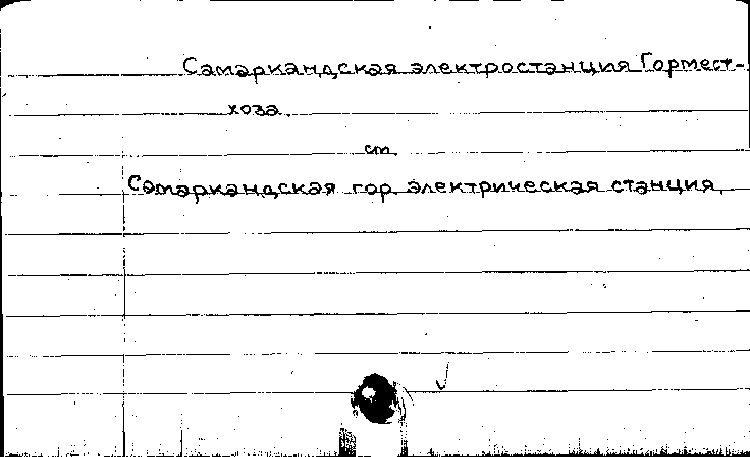 Самаркандская электростанция Гормест-
хоза.
см.
Самаркандская гор. электрическая станция.